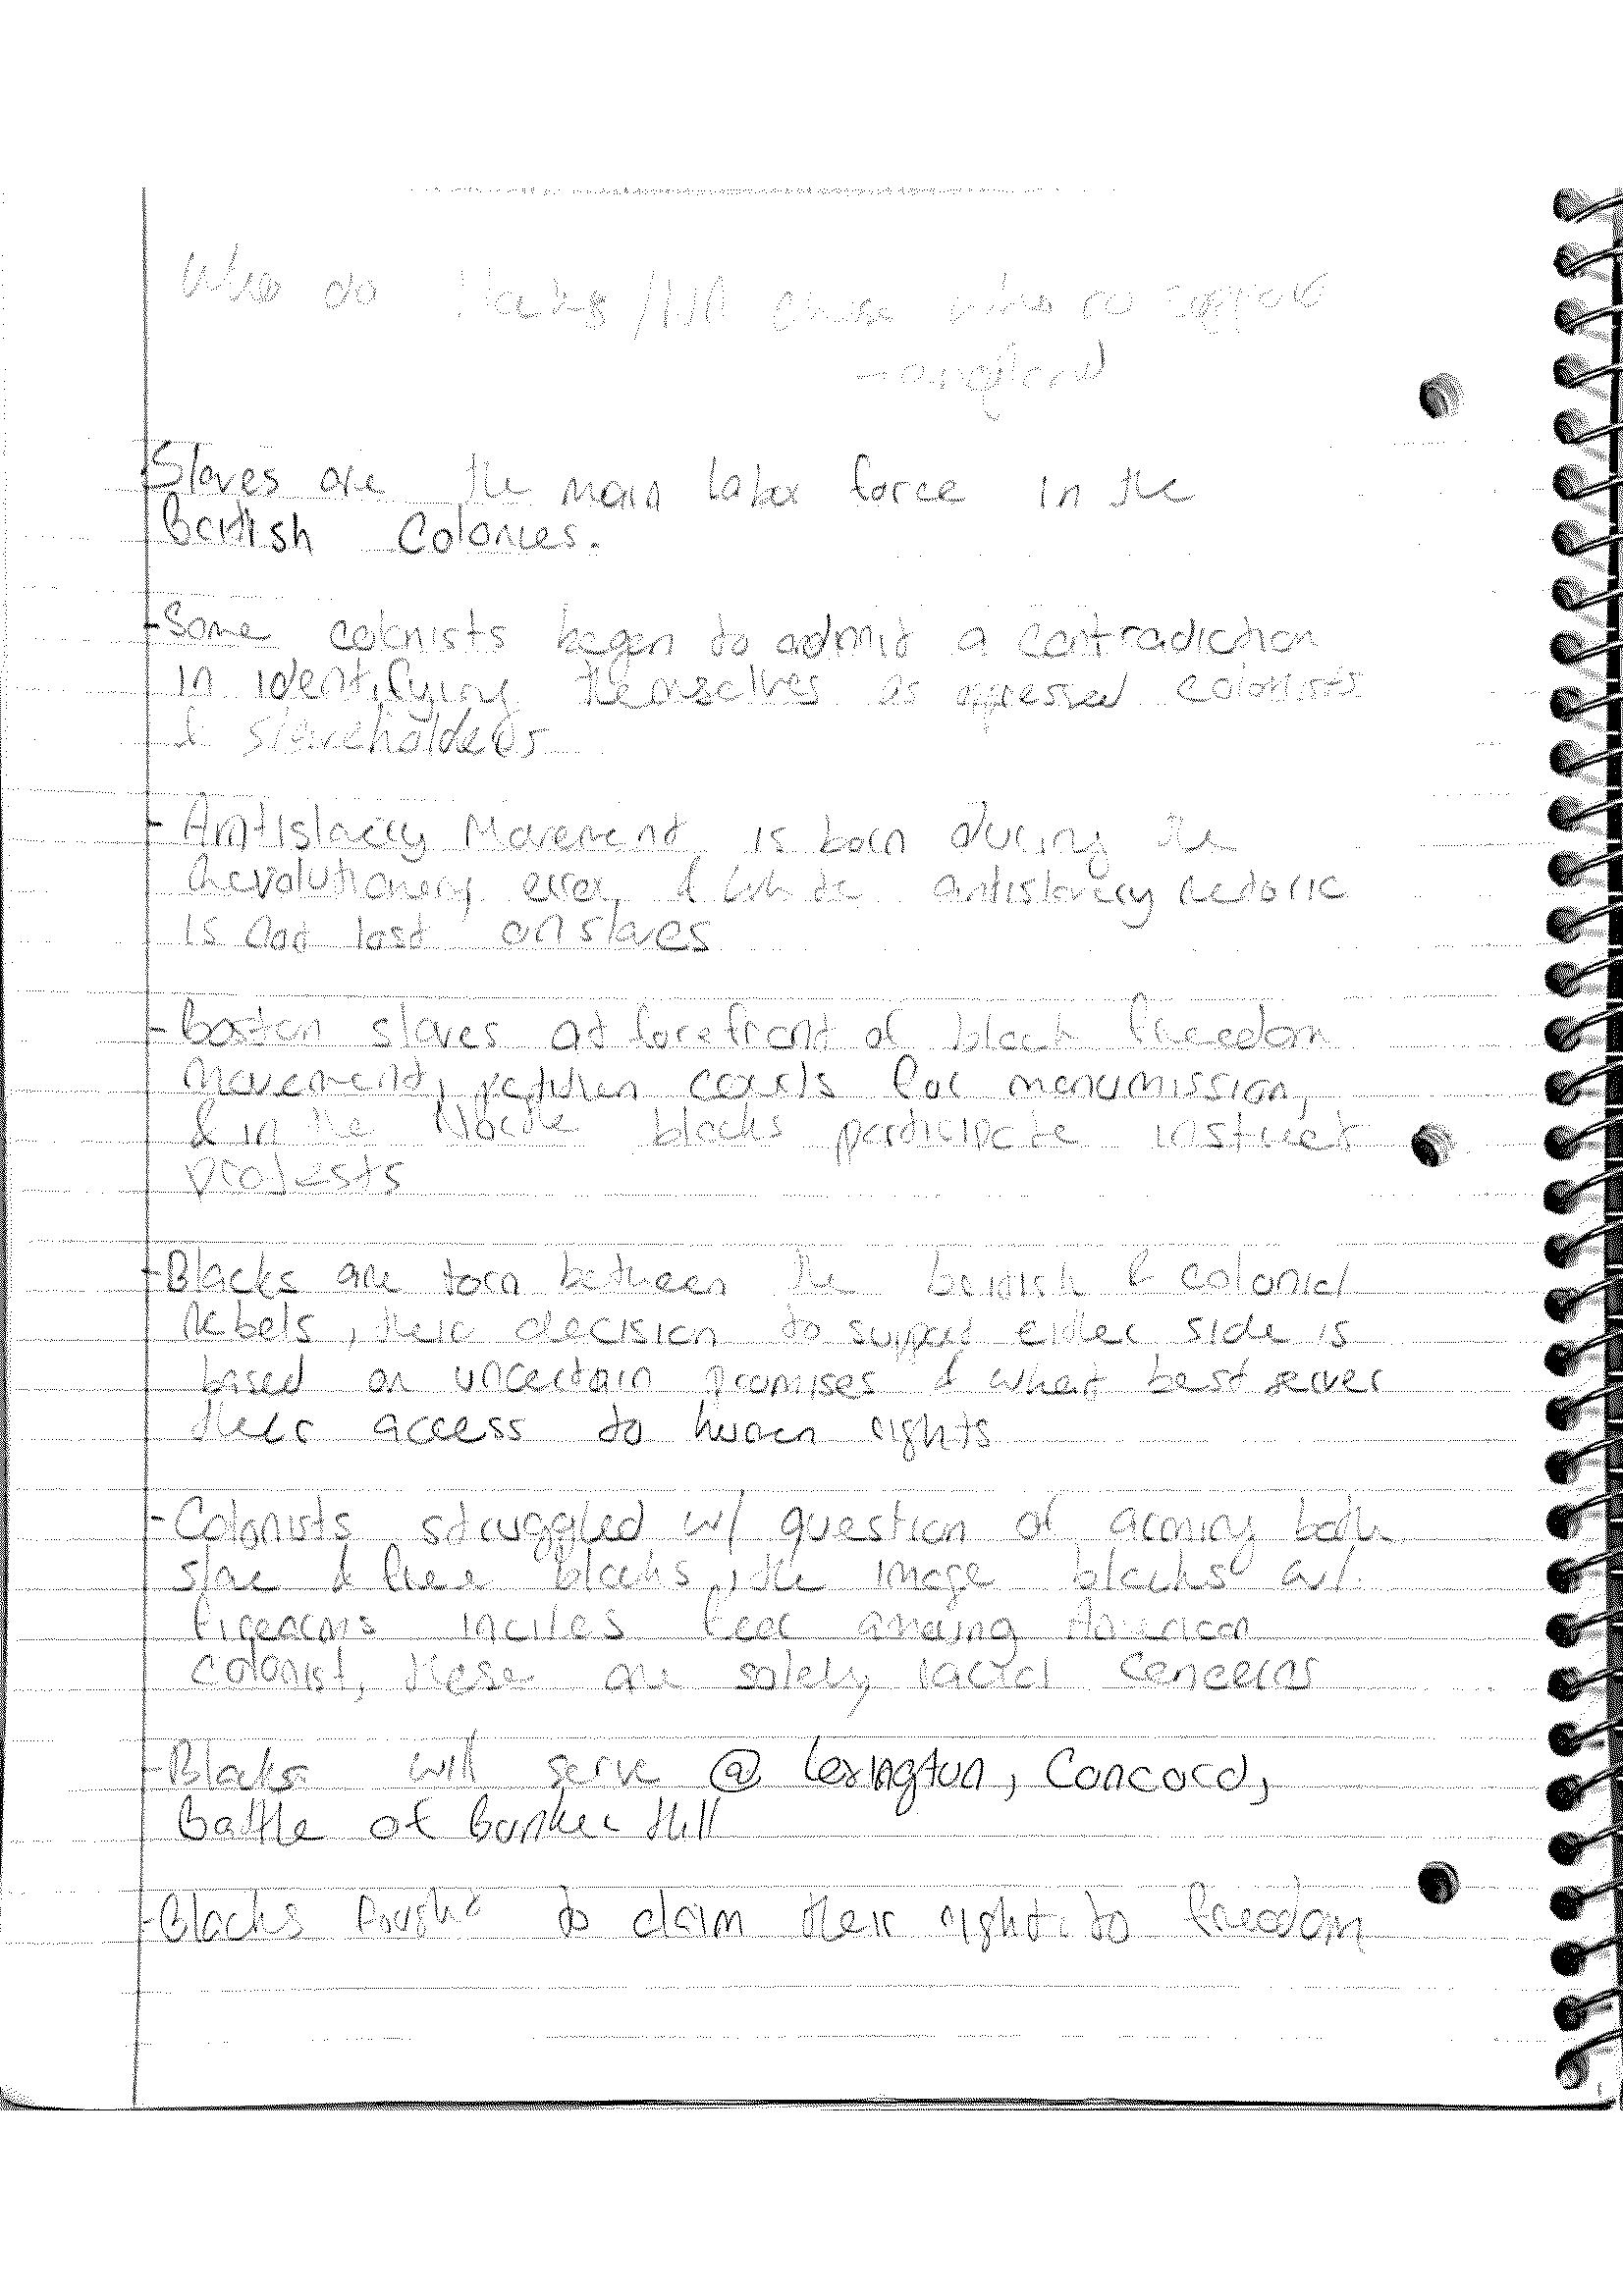 Who do blacks/NA chose who to support
- england
Slaves are the main labor force in the
British Colonies.
- Some colonists began to admit a contradiction
in identifying themselves as oppressed colonists
& slaveholders
- Antislavery Movement is born during the
Revolutionary error, & white antislavery retoric
is not lost on slaves
- Boston slaves at forefront of black freedom
movement, petition courts for manumission,
& in the North blacks participate in street
protests
- Blacks are torn between the british & colonial
rebels, their decision to support either side is
based on uncertain promises & what best server
their access to human rights
- Colonists struggled w/ question of arming both
slave & free blacks, the image blacks w/
firearms incites fear among American
colonist, these are solely racial concerns
- Blacks will serve @ Lexington, Concord,
Battle of Bunker Hill
- Blacks fought to claim their right to freedom